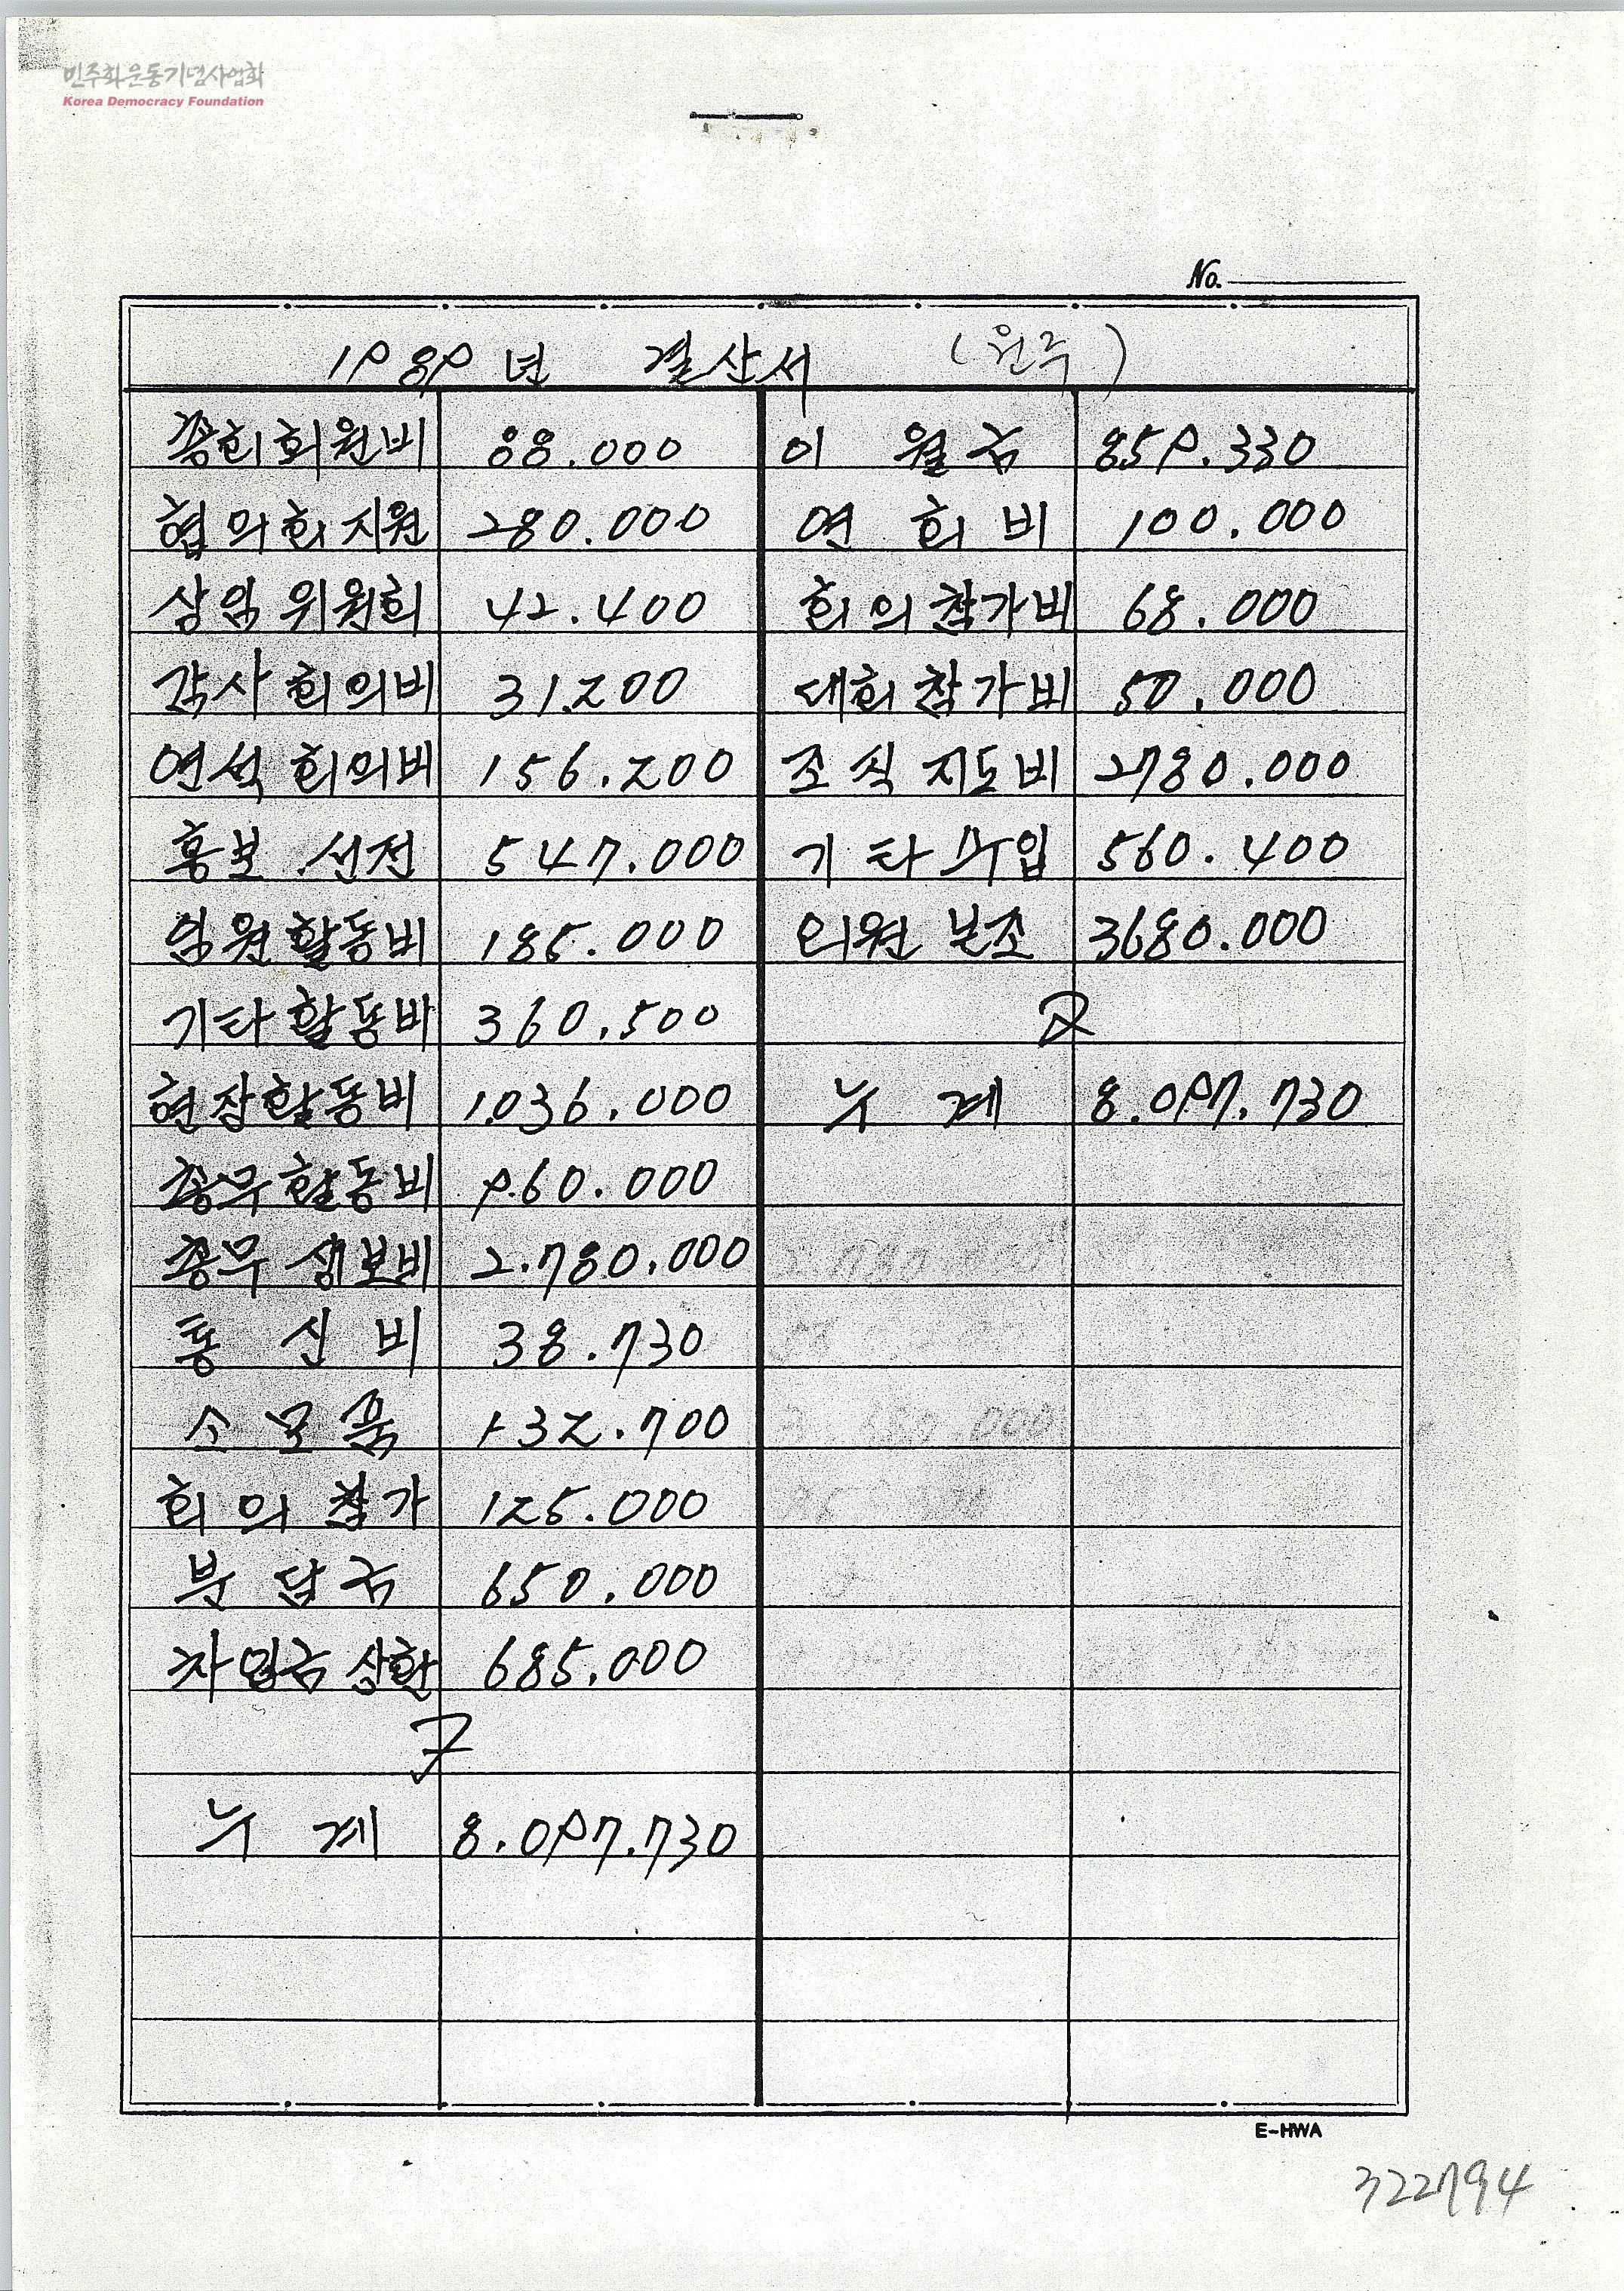 민주화운동기념사업회
Korea Democracy Foundation
No.
1989년 결산서 (원주)
총회회원비 88.000 이월금 859.330
협의회지원 280.000 연회비 100.000
상임위원회 42.400 회의참가비 68.000
감사회의비 31.200 대회참가비 50.000
연석회의비 156.200 조직지도비 2780.000
홍보 선전 547.000 기타수입 560.400
임원활동비 185.000 보조 3680.000
기타활동비 360.500
현장활동비 1.036.000 누계 8.097.730
총무활동비 960.000
총무생보비 2.780.000
통신비 38.730
소모품 132.700
회의참가 125.000
부담금 650.000
차입금상환 685.000
누계 8.097.730
E-HWA
322794